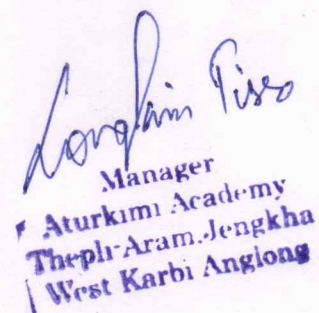 Longkim Tisso
Manager
Aturkimi Academy
Theplı-Aram.Jengkha
West Karbi Anglong